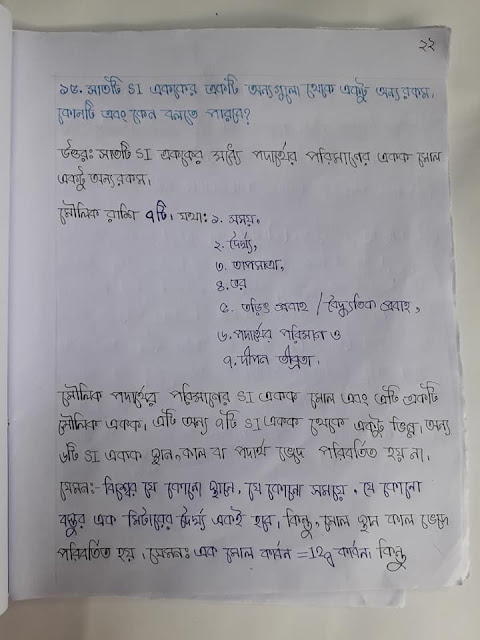 ২২
১৫. সাতটি SI এককের একটি অন্যগুলো থেকে একটু অন্যরকম,
কোনটি এবং কেন বলতে পারবে?
উত্তরঃ সাতটি SI এককের মধ্যে পদার্থের পরিমানের একক মোল
একটু অন্যরকম।
মৌলিক রাশি ৭টি। যথাঃ ১. সময়,
২. দৈর্ঘ্য,
৩. তাপমাত্রা,
৪. ভর
৫. তড়িৎ প্রবাহ / বৈদ্যুতিক প্রবাহ,
৬. পদার্থের পরিমান ও
৭. দীপন তীব্রতা।
মৌলিক পদার্থের পরিমানের SI একক মোল এবং এটি একটি
মৌলিক একক। এটি অন্য ৭টি SI একক থেকে একটু ভিন্ন। অন্য
৬টি SI একক স্থান, কাল বা পদার্থ ভেদে পরিবর্তিত হয় না।
যেমনঃ- বিশ্বের যে কোনো স্থানে, যে কোনো সময়ে, যে কোনো
বস্তুর এক মিটারের দৈর্ঘ্য একই হবে, কিন্তু, মোল স্থান কাল ভেদে
পরিবর্তিত হয়, যেমনঃ এক মোল কার্বন = 12g কার্বন। কিন্তু